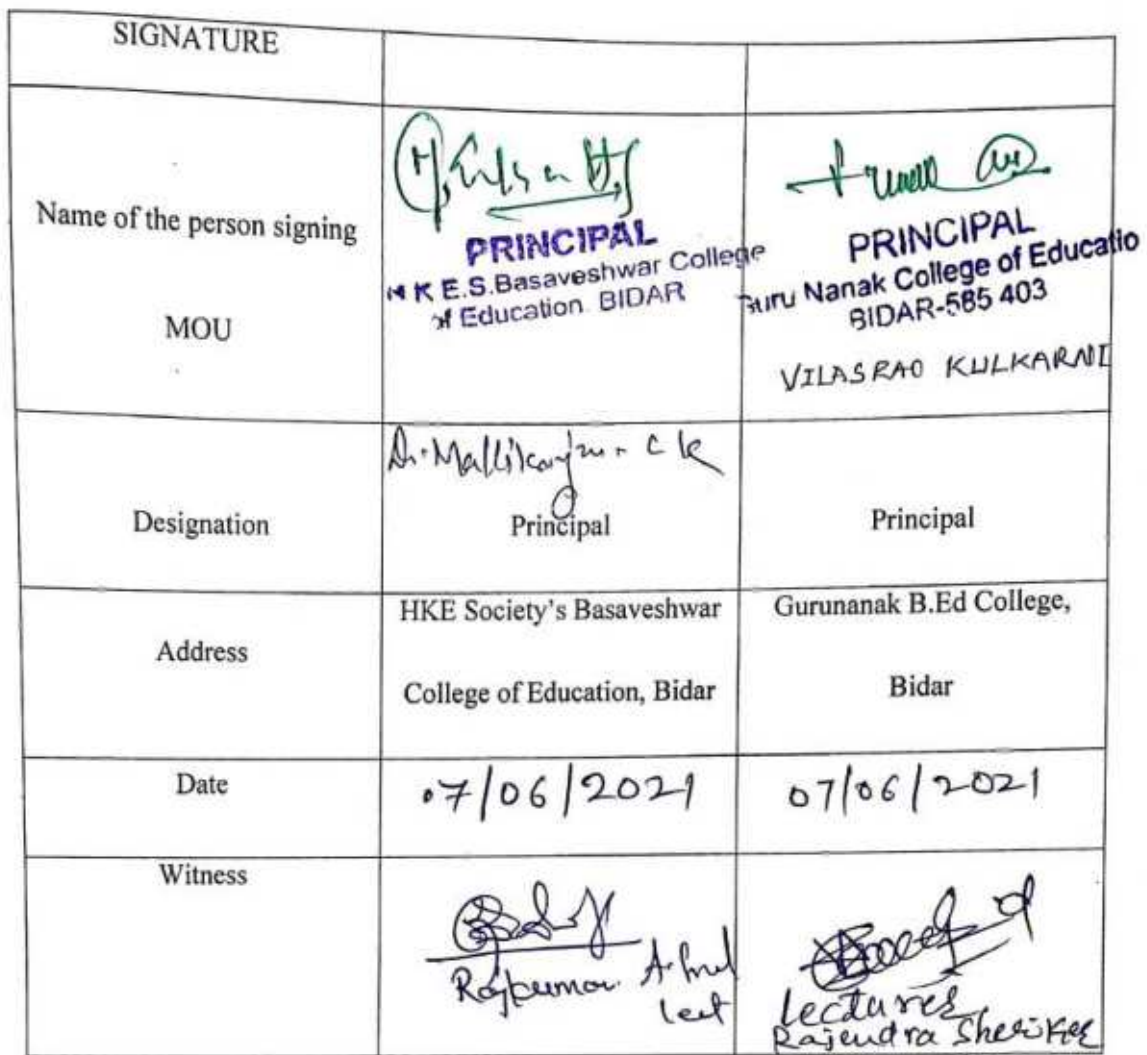 SIGNATURE
Name of the person signing
MOU
PRINCIPAL
H K E.S.Basaveshwar College
of Education. BIDAR
PRINCIPAL
Guru Nanak College of Educatio
BIDAR-585 403
VILASRAO KULKARNI
Designation
Dr. Mallikarjun C K
Principal
Principal
Address
HKE Society's Basaveshwar
College of Education, Bidar
Gurunanak B.Ed College,
Bidar
Date
07/06/2021
07/06/2021
Witness
Rajkumar
lect
lecturer
Rajendra